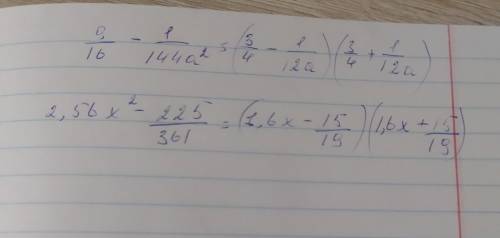 9/16 - 1/144a² = (3/4 - 1/12a)(3/4 + 1/12a)
2,56x² - 225/361 = (1,6x - 15/19)(1,6x + 15/19)